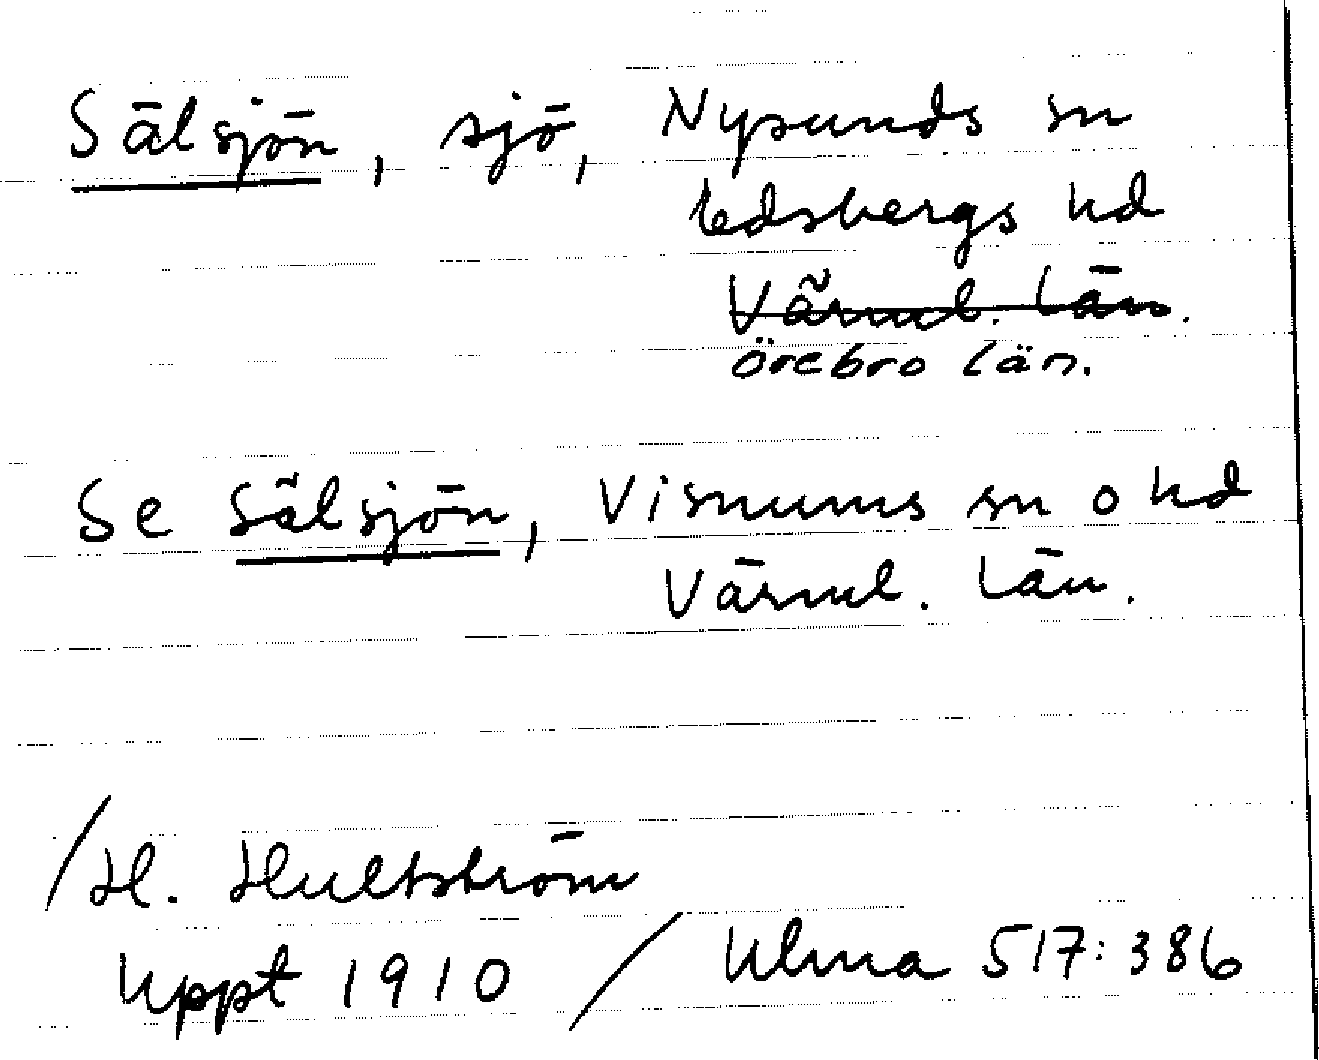 Sälsjön, sjö, Nysunds sn
Edsbergs hd
Värml. län.
Örebro län.
Se Sälsjön, Visnums sn o hd
Värml. län.
/H. Hultström
Uppt 1910 / Ulma 517:386